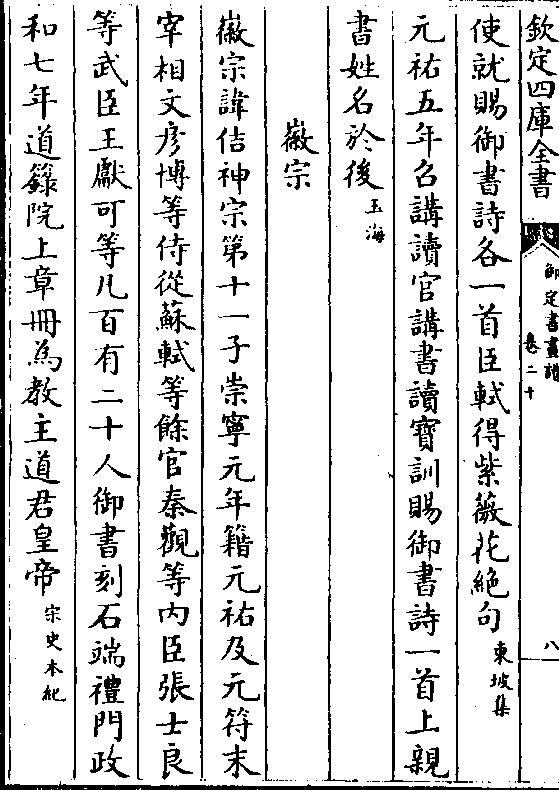 欽定四庫全書
御定書畫譜
卷二十
八
使就賜御書詩各一首臣軾得紫薇花絶句東坡集
元祐五年召講讀官講書讀寶訓賜御書詩一首上親
書姓名於後玉海
徽宗
徽宗諱佶神宗第十一子崇寧元年籍元祐及元符末
宰相文彦博等侍從蘇軾等餘官秦觀等内臣張士良
等武臣王獻可等凡百有二十人御書刻石端禮門政
和七年道籙院上章冊為教主道君皇帝宋史本紀